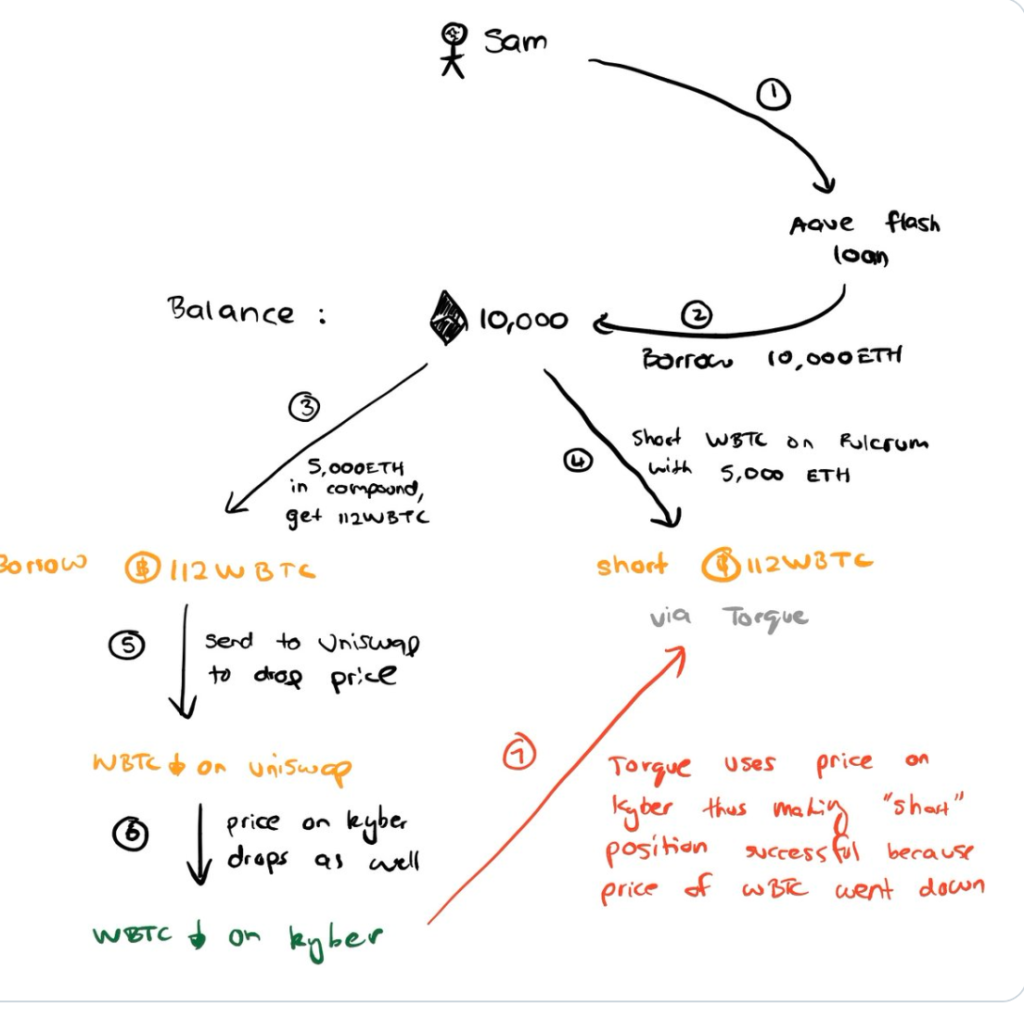 Sam
1
Aave flash
loan
Balance :
10,000
2
Borrow 10,000 ETH
3
5,000 ETH
in compound,
get 112WBTC
4
Short WBTC on Fulcrum
with 5,000 ETH
Borrow ₿ 112WBTC
short ₿ 112WBTC
via Torque
5
send to Uniswap
to drop price
WBTC ↓ on uniswap
6
price on kyber
drops as well
WBTC ↓ on kyber
7
Torque uses price on
kyber thus making "short"
position successful because
price of WBTC went down